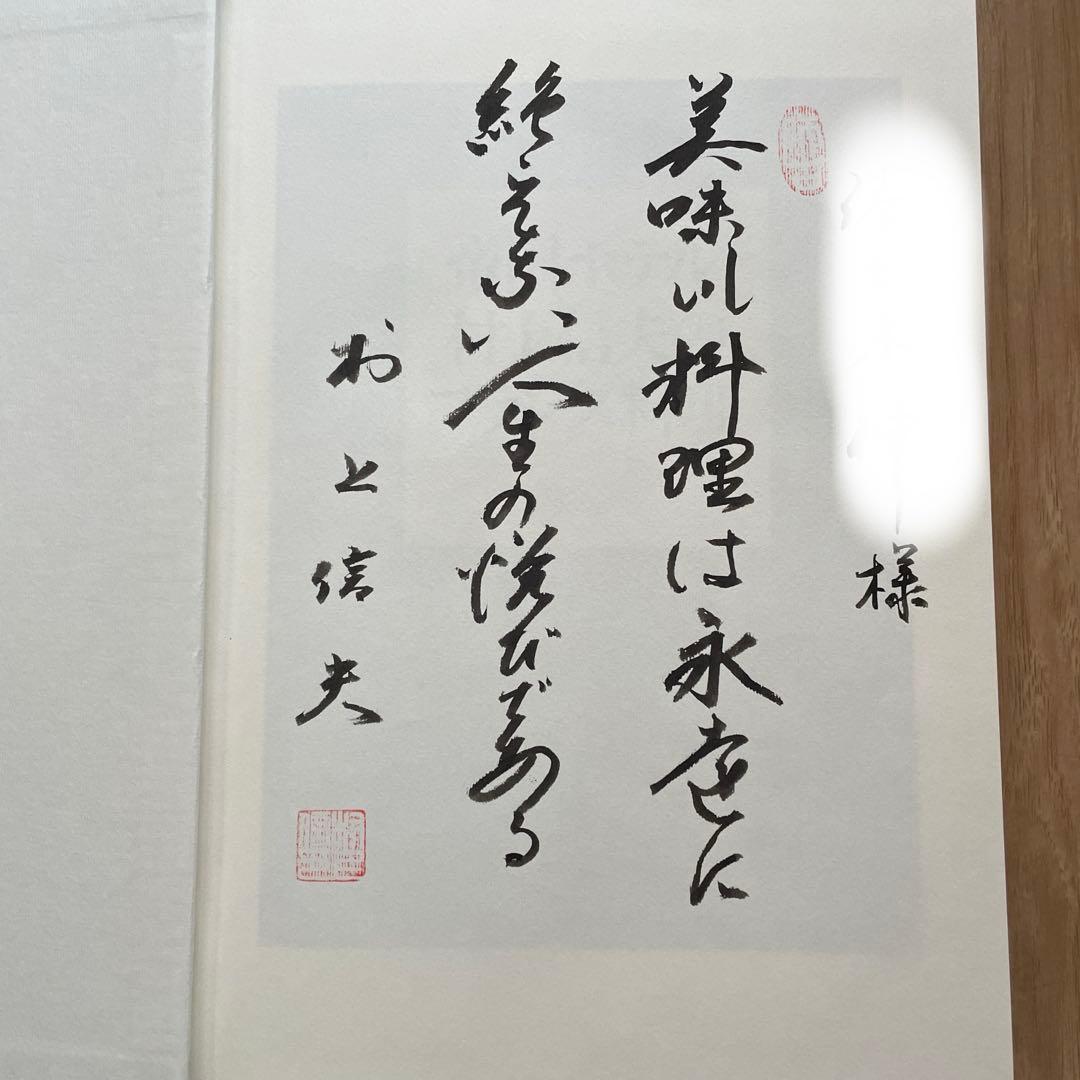 様
美味しい料理は永遠に
絶えない人生の悦びである
村上信夫